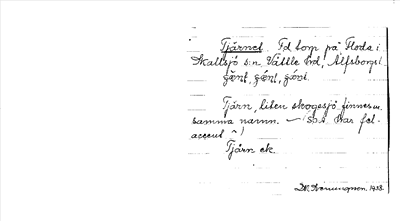 Tjärnet. Fd torp på Floda i
Skallsjö s:n, Vättle hd, Älfsborgs l.
Tjärn, liten skogssjö finnes m.
samma namn. — (Obs. har fel-
accent ^)
Tjärn ek.
1938.